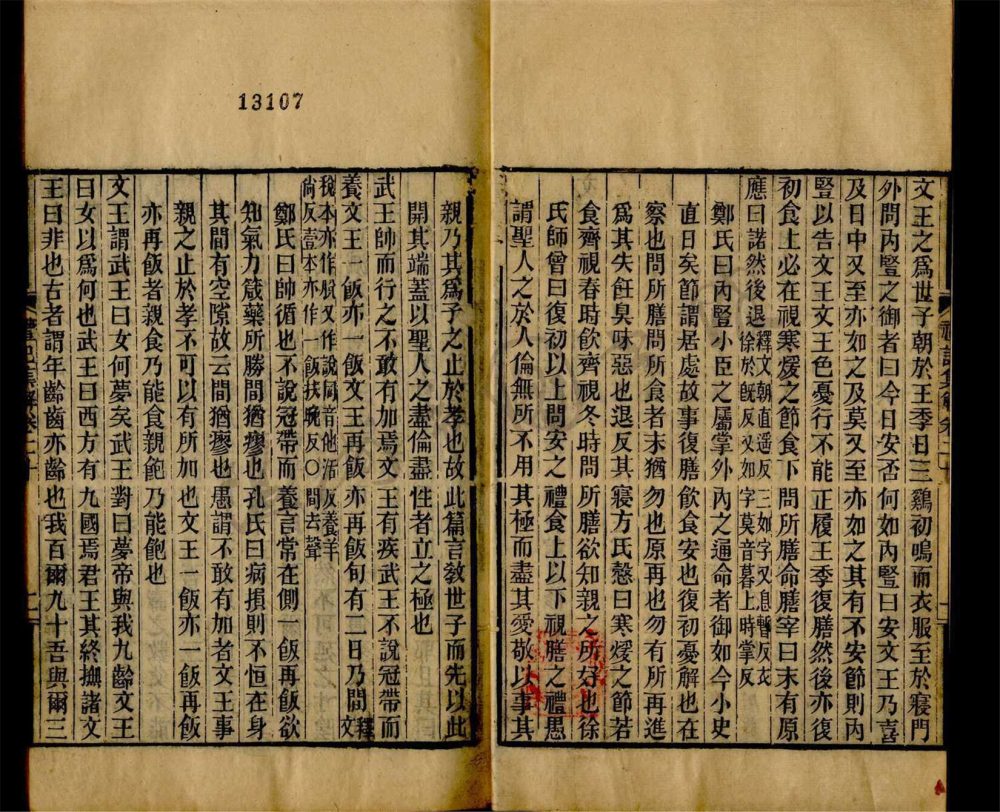 文王之爲世子朝於王季日三雞初鳴而衣服至於寢門
外問內豎之御者曰今日安否何如內豎曰安文王乃喜
及日中又至亦如之及莫又至亦如之其有不安節則內
豎以告文王文王色憂行不能正履王季復膳然後亦復
初食上必在視寒煖之節食下問所膳命膳宰曰末有原
應曰諾然後退釋文朝直遥反三如字又息暫反衣徐於旣反又如字莫音暮上時掌反
鄭氏曰內豎小臣之屬掌外內之通命者御如今小史
直日矣節謂居處故事復膳飲食安也復初憂解也在
察也問所膳問所食者末猶勿也原再也勿有所再進
爲其失飪臭味惡也退反其寢方氏慤曰寒煖之節若
食齊視春時飲齊視冬時問所膳欲知親之所好也徐
氏師曾曰復初以上問安之禮食上以下視膳之禮愚
謂聖人之於人倫無所不用其極而盡其愛敬以事其
13107
親乃其爲子之止於孝也故此篇言敎世子而先以此
開其端蓋以聖人之盡倫盡性者立之極也
武王帥而行之不敢有加焉文王有疾武王不說冠帶而
養文王一飯亦一飯文王再飯亦再飯旬有二日乃間釋文
稅本亦作脫又作說同音他活反養羊尙反壹本亦作一飯扶晚反○間去聲
鄭氏曰帥循也不說冠帶而養言常在側一飯再飯欲
知氣力箴藥所勝間猶瘳也孔氏曰病損則不恒在身
其間有空隙故云間猶瘳也愚謂不敢有加者文王事
親之止於孝不可以有所加也文王一飯亦一飯再飯
亦再飯者親食乃能食親飽乃能飽也
文王謂武王曰女何夢矣武王對曰夢帝與我九齡文王
曰女以爲何也武王曰西方有九國焉君王其終撫諸文
王曰非也古者謂年齡齒亦齡也我百爾九十吾與爾三
禮記集解卷二十